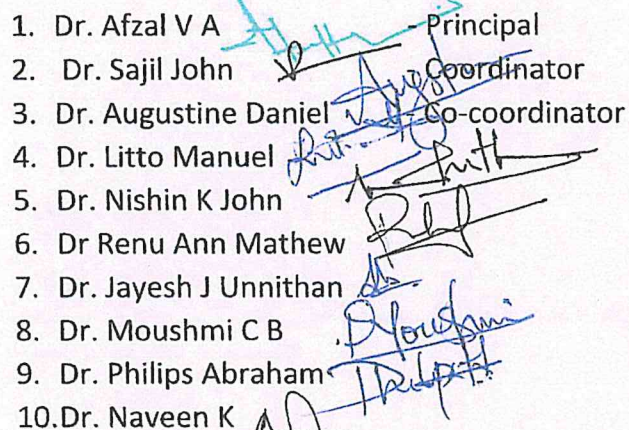 1. Dr. Afzal V A - Principal
2. Dr. Sajil John Coordinator
3. Dr. Augustine Daniel - Co-coordinator
4. Dr. Litto Manuel
5. Dr. Nishin K John
6. Dr Renu Ann Mathew
7. Dr. Jayesh J Unnithan
8. Dr. Moushmi C B
9. Dr. Philips Abraham
10.Dr. Naveen K